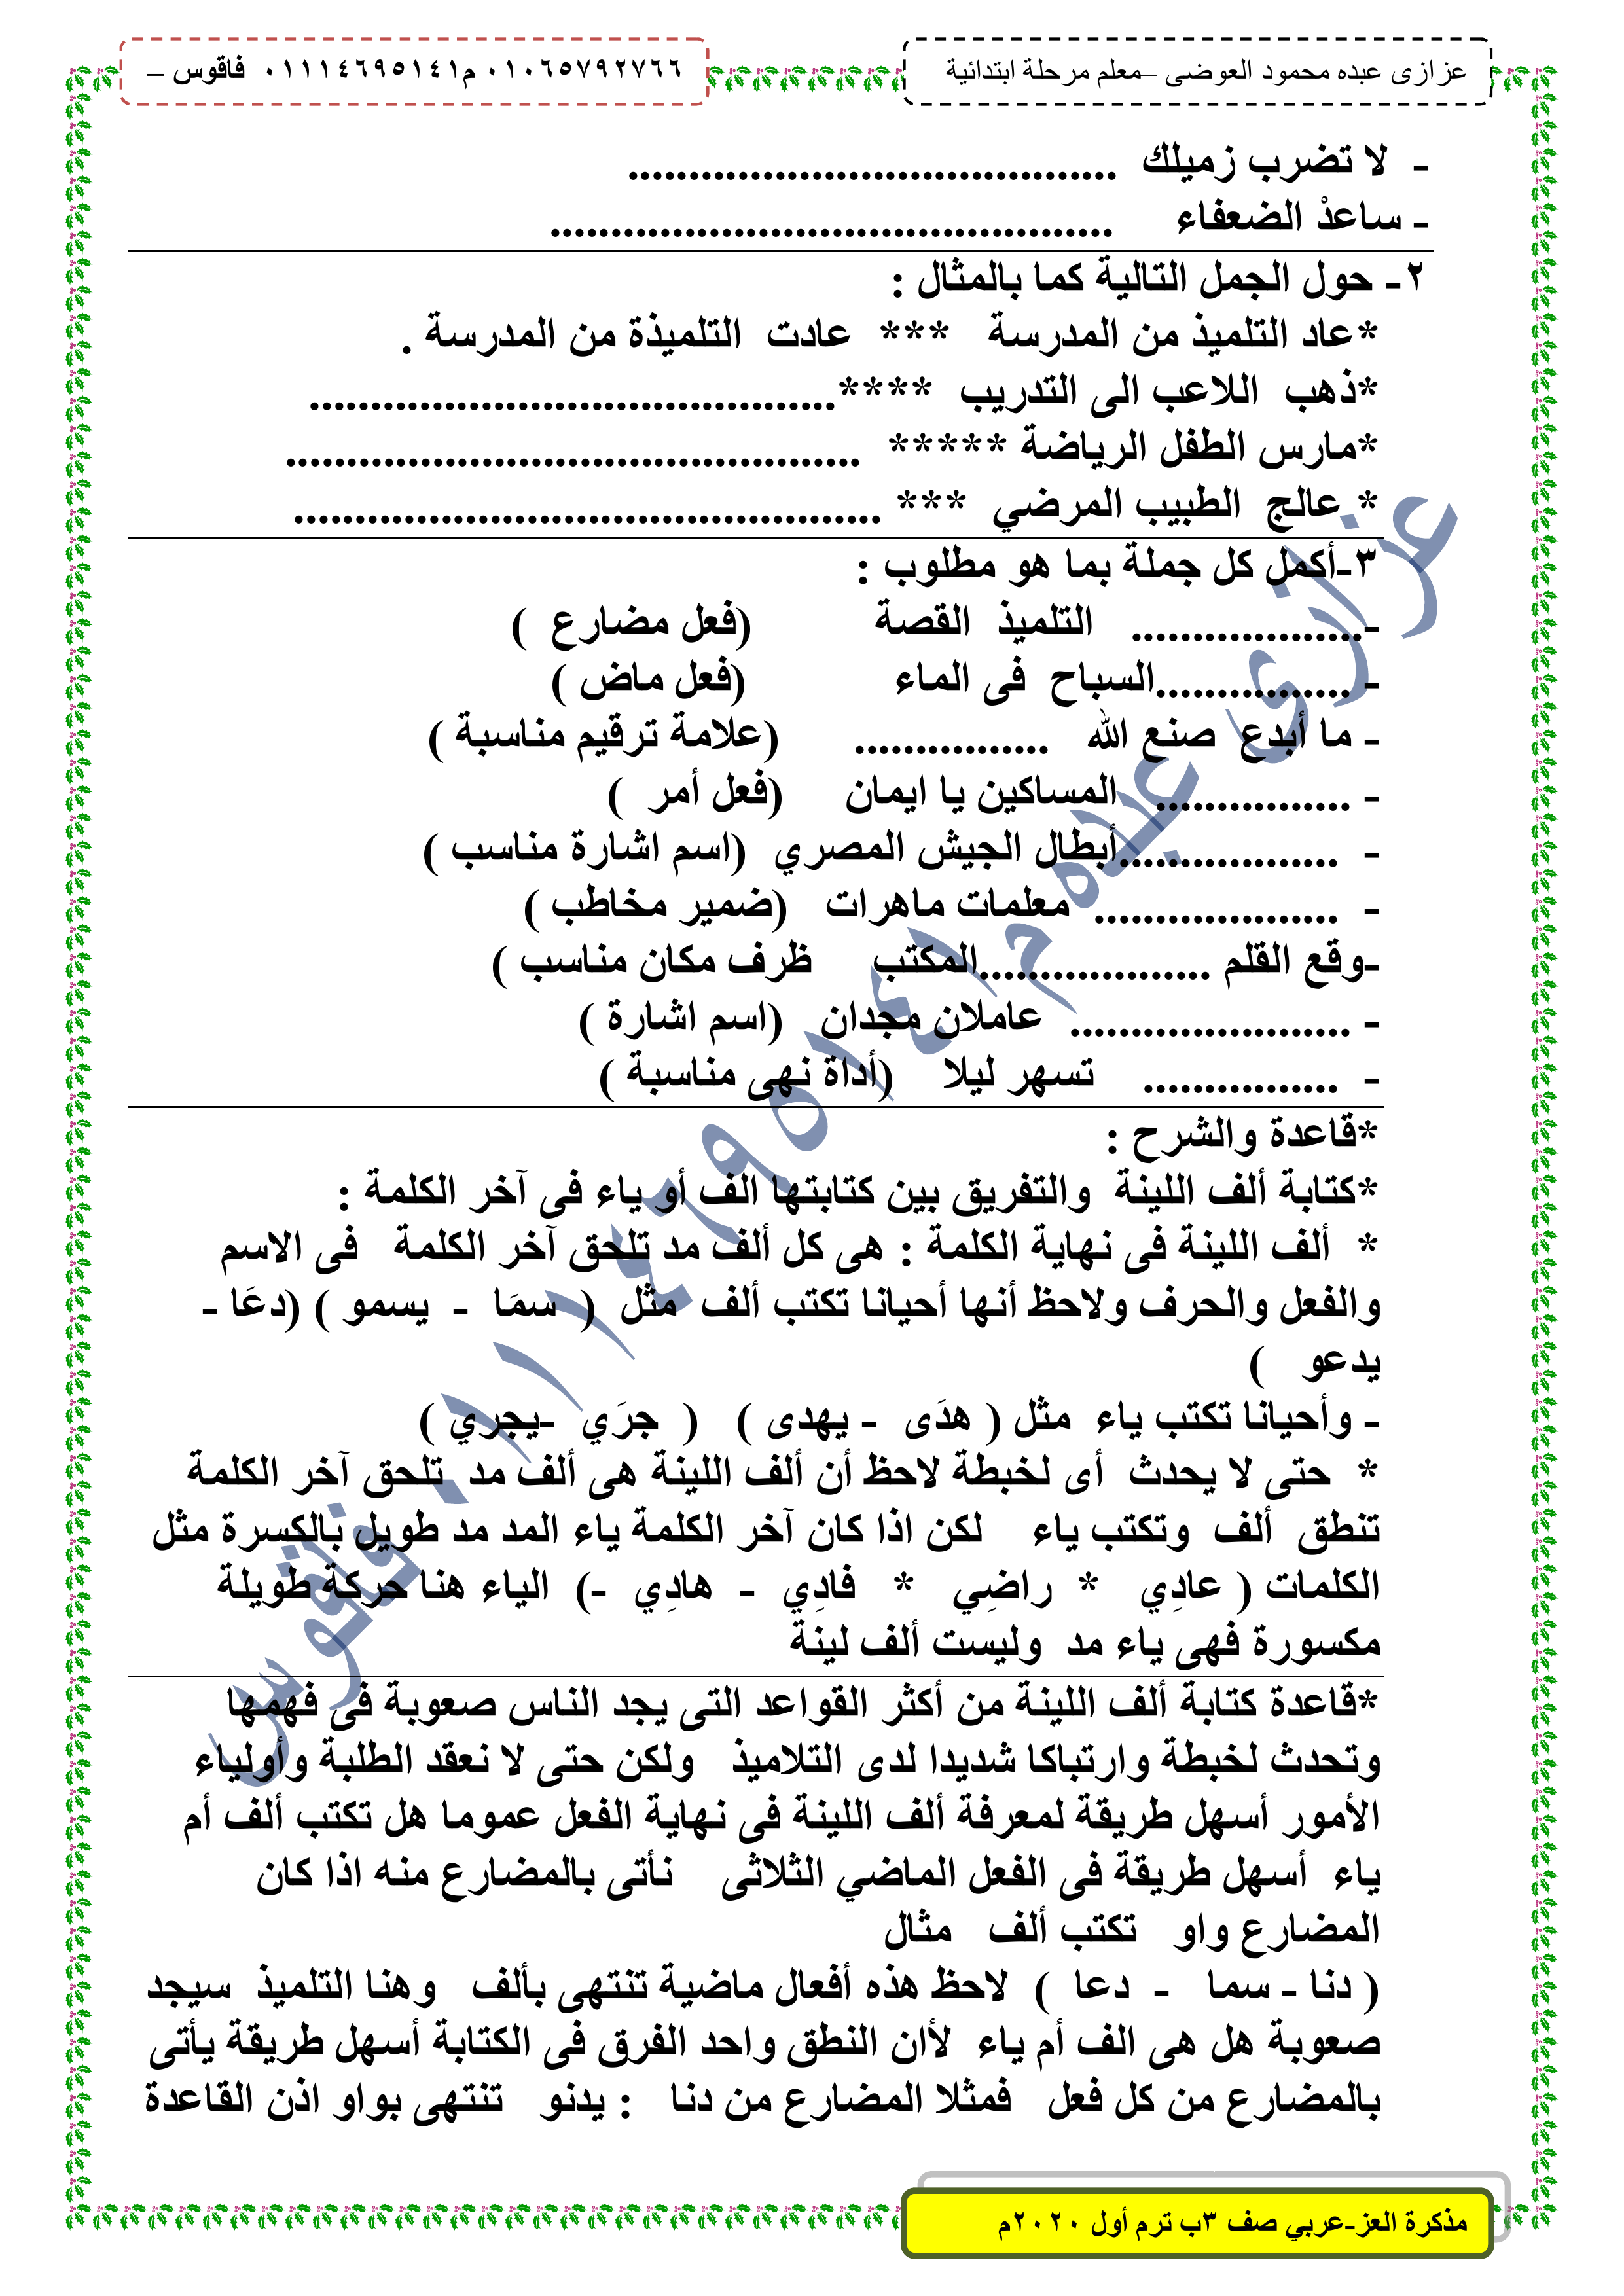 عزازى عبده محمود العوضى –معلم مرحلة ابتدائية
٠١٠٦٥٧٩٢٧٦٦ م٠١١١٤٦٩٥١٤١ فاقوس –
- لا تضرب زميلك ........................................
- ساعدْ الضعفاء ..............................................
٢- حول الجمل التالية كما بالمثال :
*عاد التلميذ من المدرسة *** عادت التلميذة من المدرسة .
*ذهب اللاعب الى التدريب ****...........................................
*مارس الطفل الرياضة ***** ...............................................
* عالج الطبيب المرضي *** ................................................
٣-أكمل كل جملة بما هو مطلوب :
-................... التلميذ القصة (فعل مضارع )
- ................السباح فى الماء (فعل ماض )
- ما أبدع صنع الله ................ (علامة ترقيم مناسبة )
- ................ المساكين يا ايمان (فعل أمر )
- ..................أبطال الجيش المصري (اسم اشارة مناسب )
- .................... معلمات ماهرات (ضمير مخاطب )
-وقع القلم ...................المكتب ظرف مكان مناسب )
- ....................... عاملان مجدان (اسم اشارة )
- ................ تسهر ليلا (أداة نهى مناسبة )
*قاعدة والشرح :
*كتابة ألف اللينة والتفريق بين كتابتها الف أو ياء فى آخر الكلمة :
* ألف اللينة فى نهاية الكلمة : هى كل ألف مد تلحق آخر الكلمة فى الاسم
والفعل والحرف ولاحظ أنها أحيانا تكتب ألف مثل ( سمَا - يسمو ) (دعَا -
يدعو )
- وأحيانا تكتب ياء مثل ( هدَى - يهدى ) ( جرَي -يجري )
* حتى لا يحدث أى لخبطة لاحظ أن ألف اللينة هى ألف مد تلحق آخر الكلمة
تنطق ألف وتكتب ياء لكن اذا كان آخر الكلمة ياء المد مد طويل بالكسرة مثل
الكلمات ( عادِي * راضِي * فادِي - هادِي -) الياء هنا حركة طويلة
مكسورة فهى ياء مد وليست ألف لينة
*قاعدة كتابة ألف اللينة من أكثر القواعد التى يجد الناس صعوبة فى فهمها
وتحدث لخبطة وارتباكا شديدا لدى التلاميذ ولكن حتى لا نعقد الطلبة وأولياء
الأمور أسهل طريقة لمعرفة ألف اللينة فى نهاية الفعل عموما هل تكتب ألف أم
ياء أسهل طريقة فى الفعل الماضي الثلاثى نأتى بالمضارع منه اذا كان
المضارع واو تكتب ألف مثال
( دنا - سما - دعا ) لاحظ هذه أفعال ماضية تنتهى بألف وهنا التلميذ سيجد
صعوبة هل هى الف أم ياء لأان النطق واحد الفرق فى الكتابة أسهل طريقة يأتى
بالمضارع من كل فعل فمثلا المضارع من دنا : يدنو تنتهى بواو اذن القاعدة
عزازى علاه م٠١١١٤٦٩٥١٤١ فاقوس
مذكرة العز-عربي صف ٣ب ترم أول ٢٠٢٠م